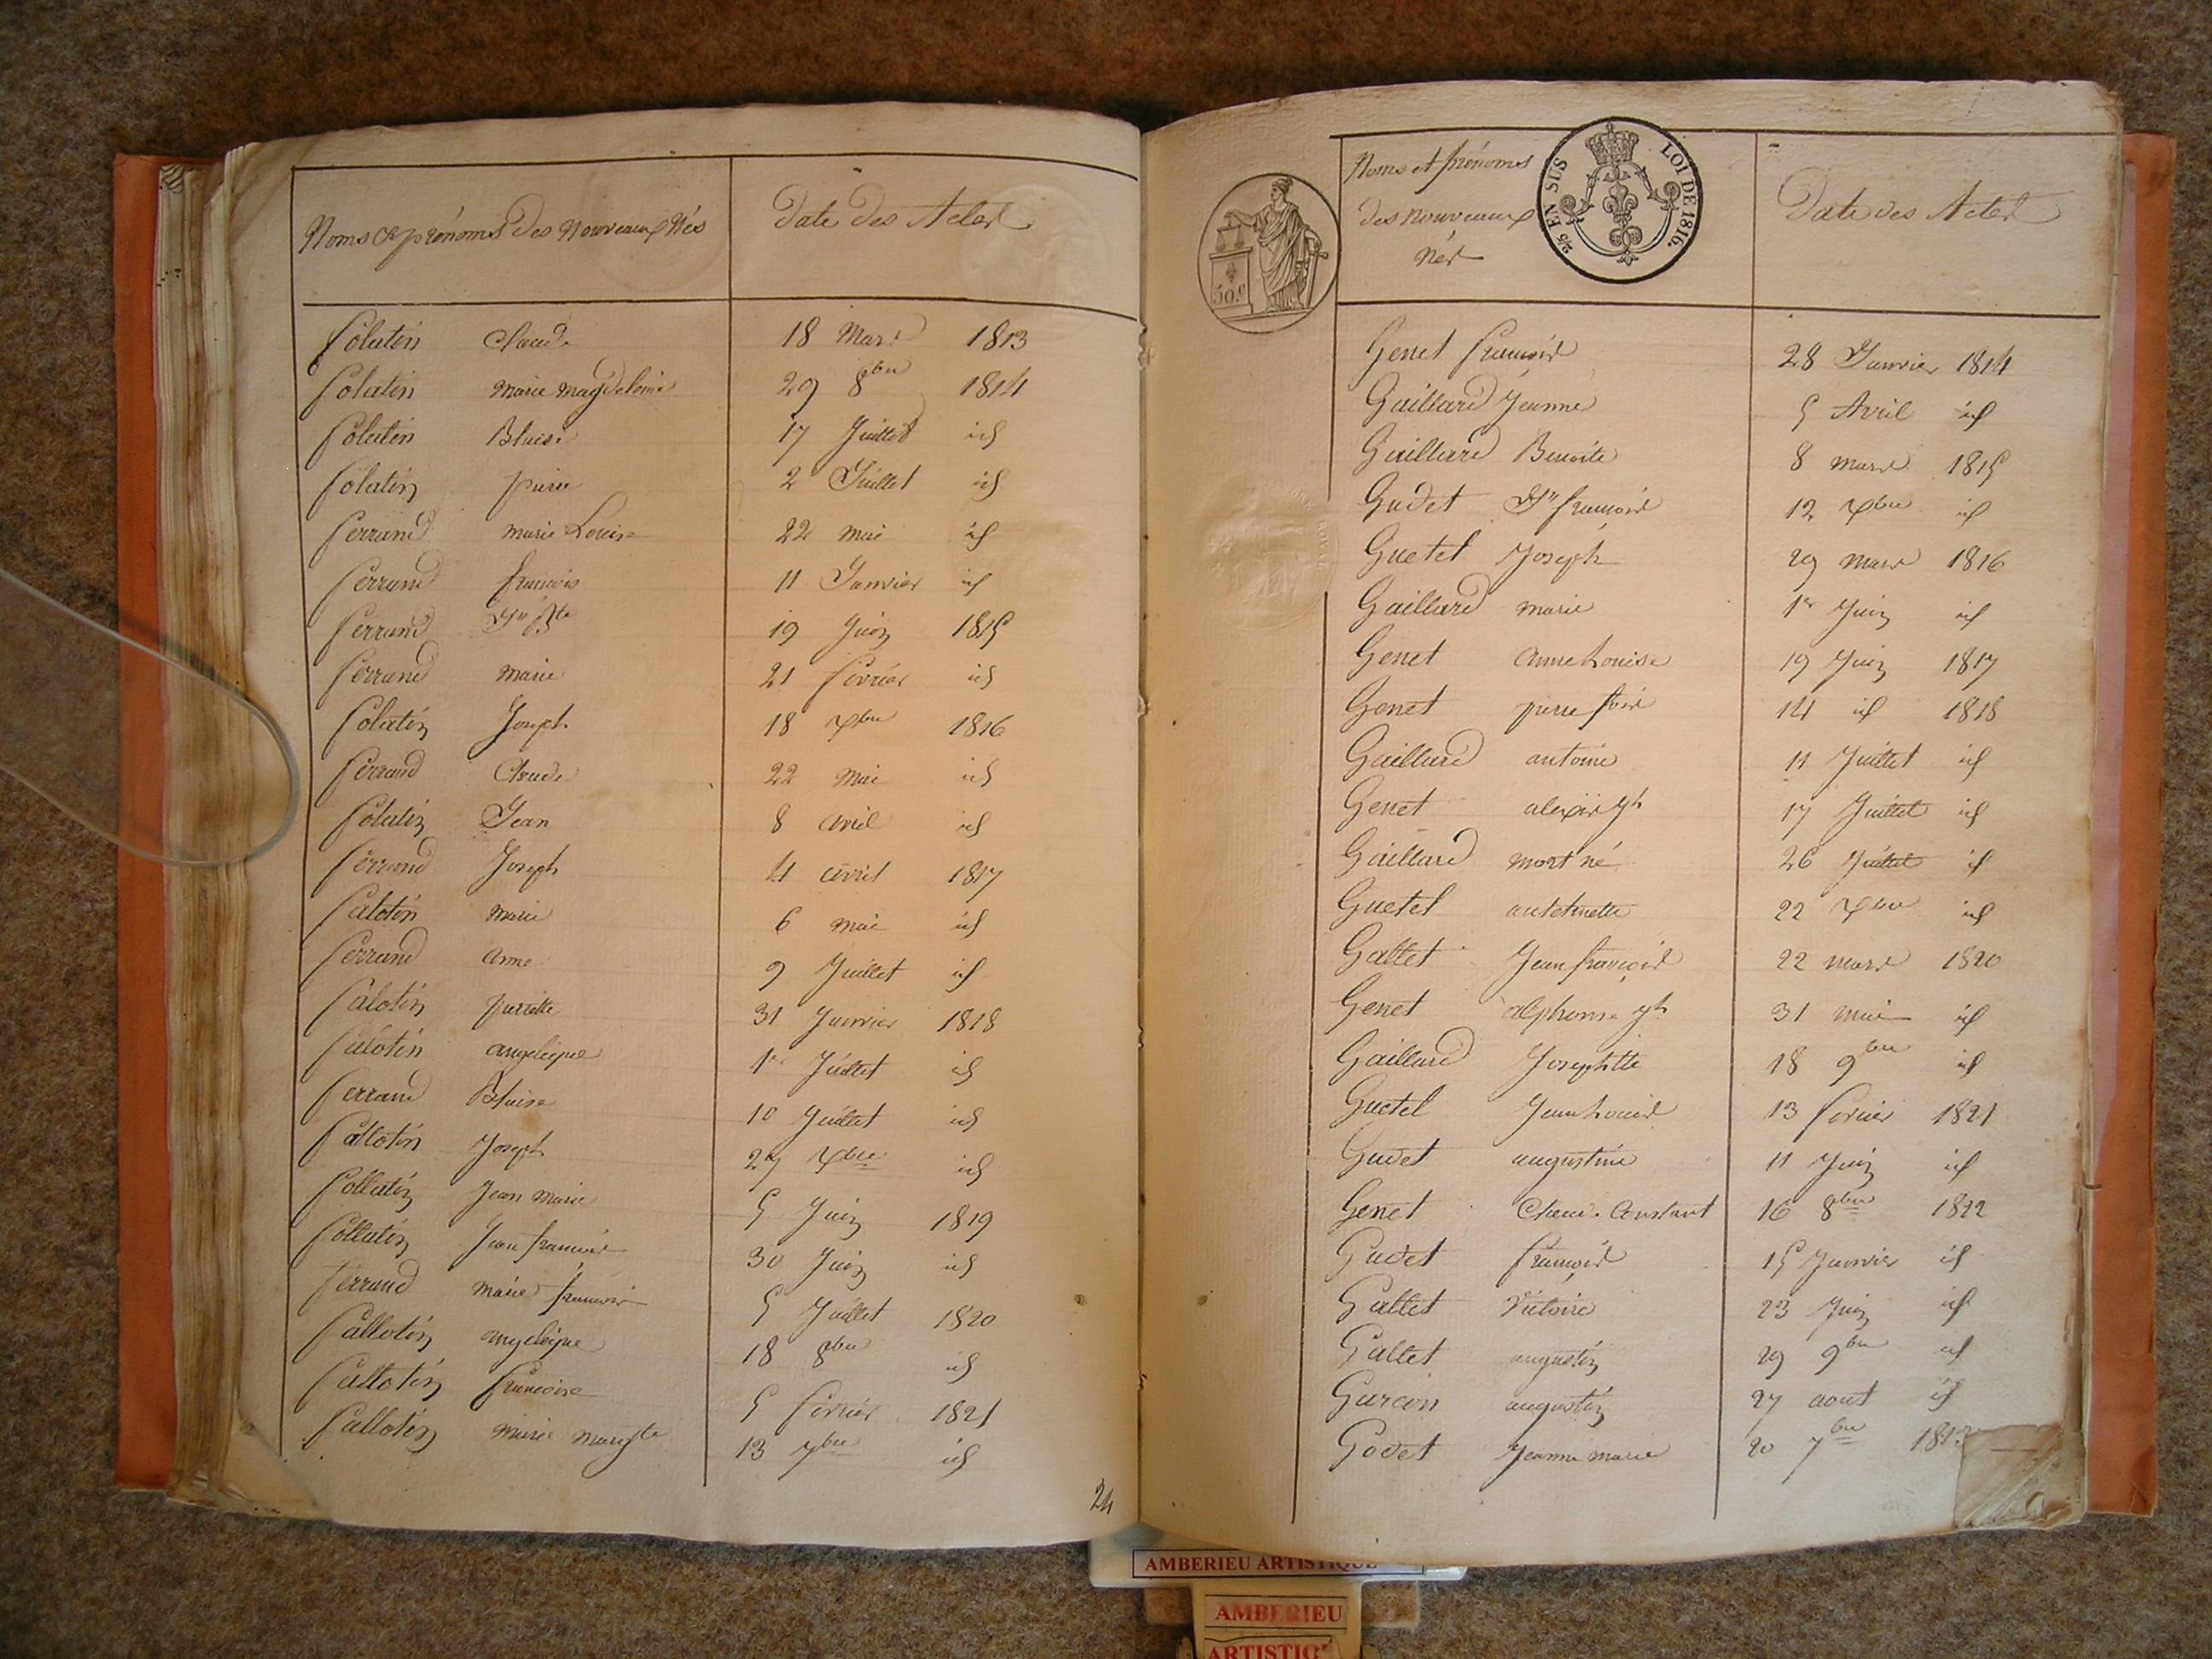 Noms & prénoms des Nouveaux Nés Date des Actes
folatin Claude 18 Mars 1813
folatin marie magdeleine 29 8bre 1814
folatin Blaise 17 Juillet id
folatin pierre 2 Juillet id
ferrand marie Louise 22 mai id
ferrand francois 11 Janvier id
ferrand Jn Bte 19 Juin 1815
ferrand marie 21 fevrier id
folatin Joseph 18 Xbre 1816
ferrand Claude 22 Mai id
folatin Jean 8 avril id
ferrand Joseph 4 avril 1817
falotin marie 6 mai id
ferrand anne 9 Juillet id
falotin pierrette 31 Janvier 1818
falotin angelique 1er Juillet id
ferrand Blaise 10 Juillet id
fallotin Joseph 27 Xbre id
follatin Jean marie 5 Juin 1819
follatin Jean francois 30 Juin id
ferrand marie francois 5 Juillet 1820
fallotin angelique 18 8bre id
fallotin francoise 5 fevrier 1821
fallotin marie margte 13 7bre id
24
Noms et prénoms
des nouveaux
nés
Date des Actes
25 EN SUS LOI DE 1816.
50.c
Genet francois 28 Janvier 1814
Gaillard Jeanne 5 Avril id
Gaillard Benoite 8 mars 1815
Gudet Jn francois 12 Xbre id
Guetet Joseph 29 mars 1816
Gaillard marie 1er Juin id
Genet anne Louise 19 Juin 1817
Genet pierre fois 14 id 1818
Gaillard antoine 11 Juillet id
Genet alexis Jh 17 Juillet id
Gaillard mort né 26 Juillet id
Guetet antoinette 22 Xbre id
Gallet Jean françois 22 mars 1820
Genet alphonse jh 31 mai id
Gaillard Josephtte 18 9bre id
Guetel Jean Louis 13 fevrier 1821
Gudet augustine 11 Juin id
Genet Claude Constant 16 8bre 1822
Gudet François 15 Janvier id
Gallet Victoire 23 Juin id
Gallet augustin 29 9bre id
Garcon augustin 27 aout id
Godet Jeanne marie 20 7bre
AMBERIEU ARTISTIQUE
AMBERIEU
ARTISTIQ